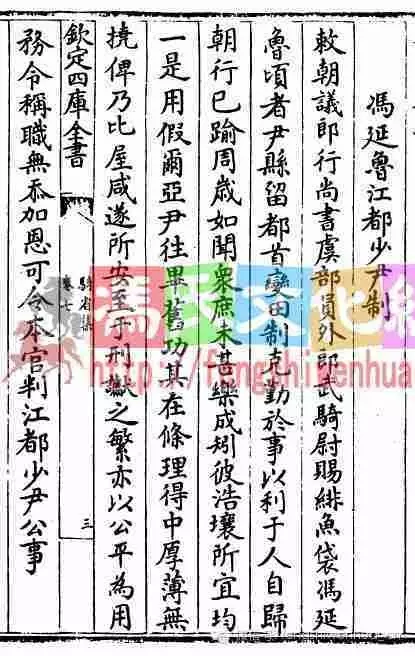 馮延魯江都少尹制
敕朝議郎行尚書虞部員外郎武騎尉賜緋魚袋馮延
魯頃者尹縣留都首變田制克勤於事以利于人自歸
朝行已踰周歳如聞衆庶未甚樂成矧彼浩壤所宜均
一是用假爾亞尹往畢舊功其在條理得中厚薄無
撓俾乃比屋咸遂所安至于刑獄之繁亦以公平為用
欽定四庫全書
騎省集
卷七
三
務令稱職無忝加恩可令本官判江都少尹公事
馮氏文化網
http://fengshiwenhua